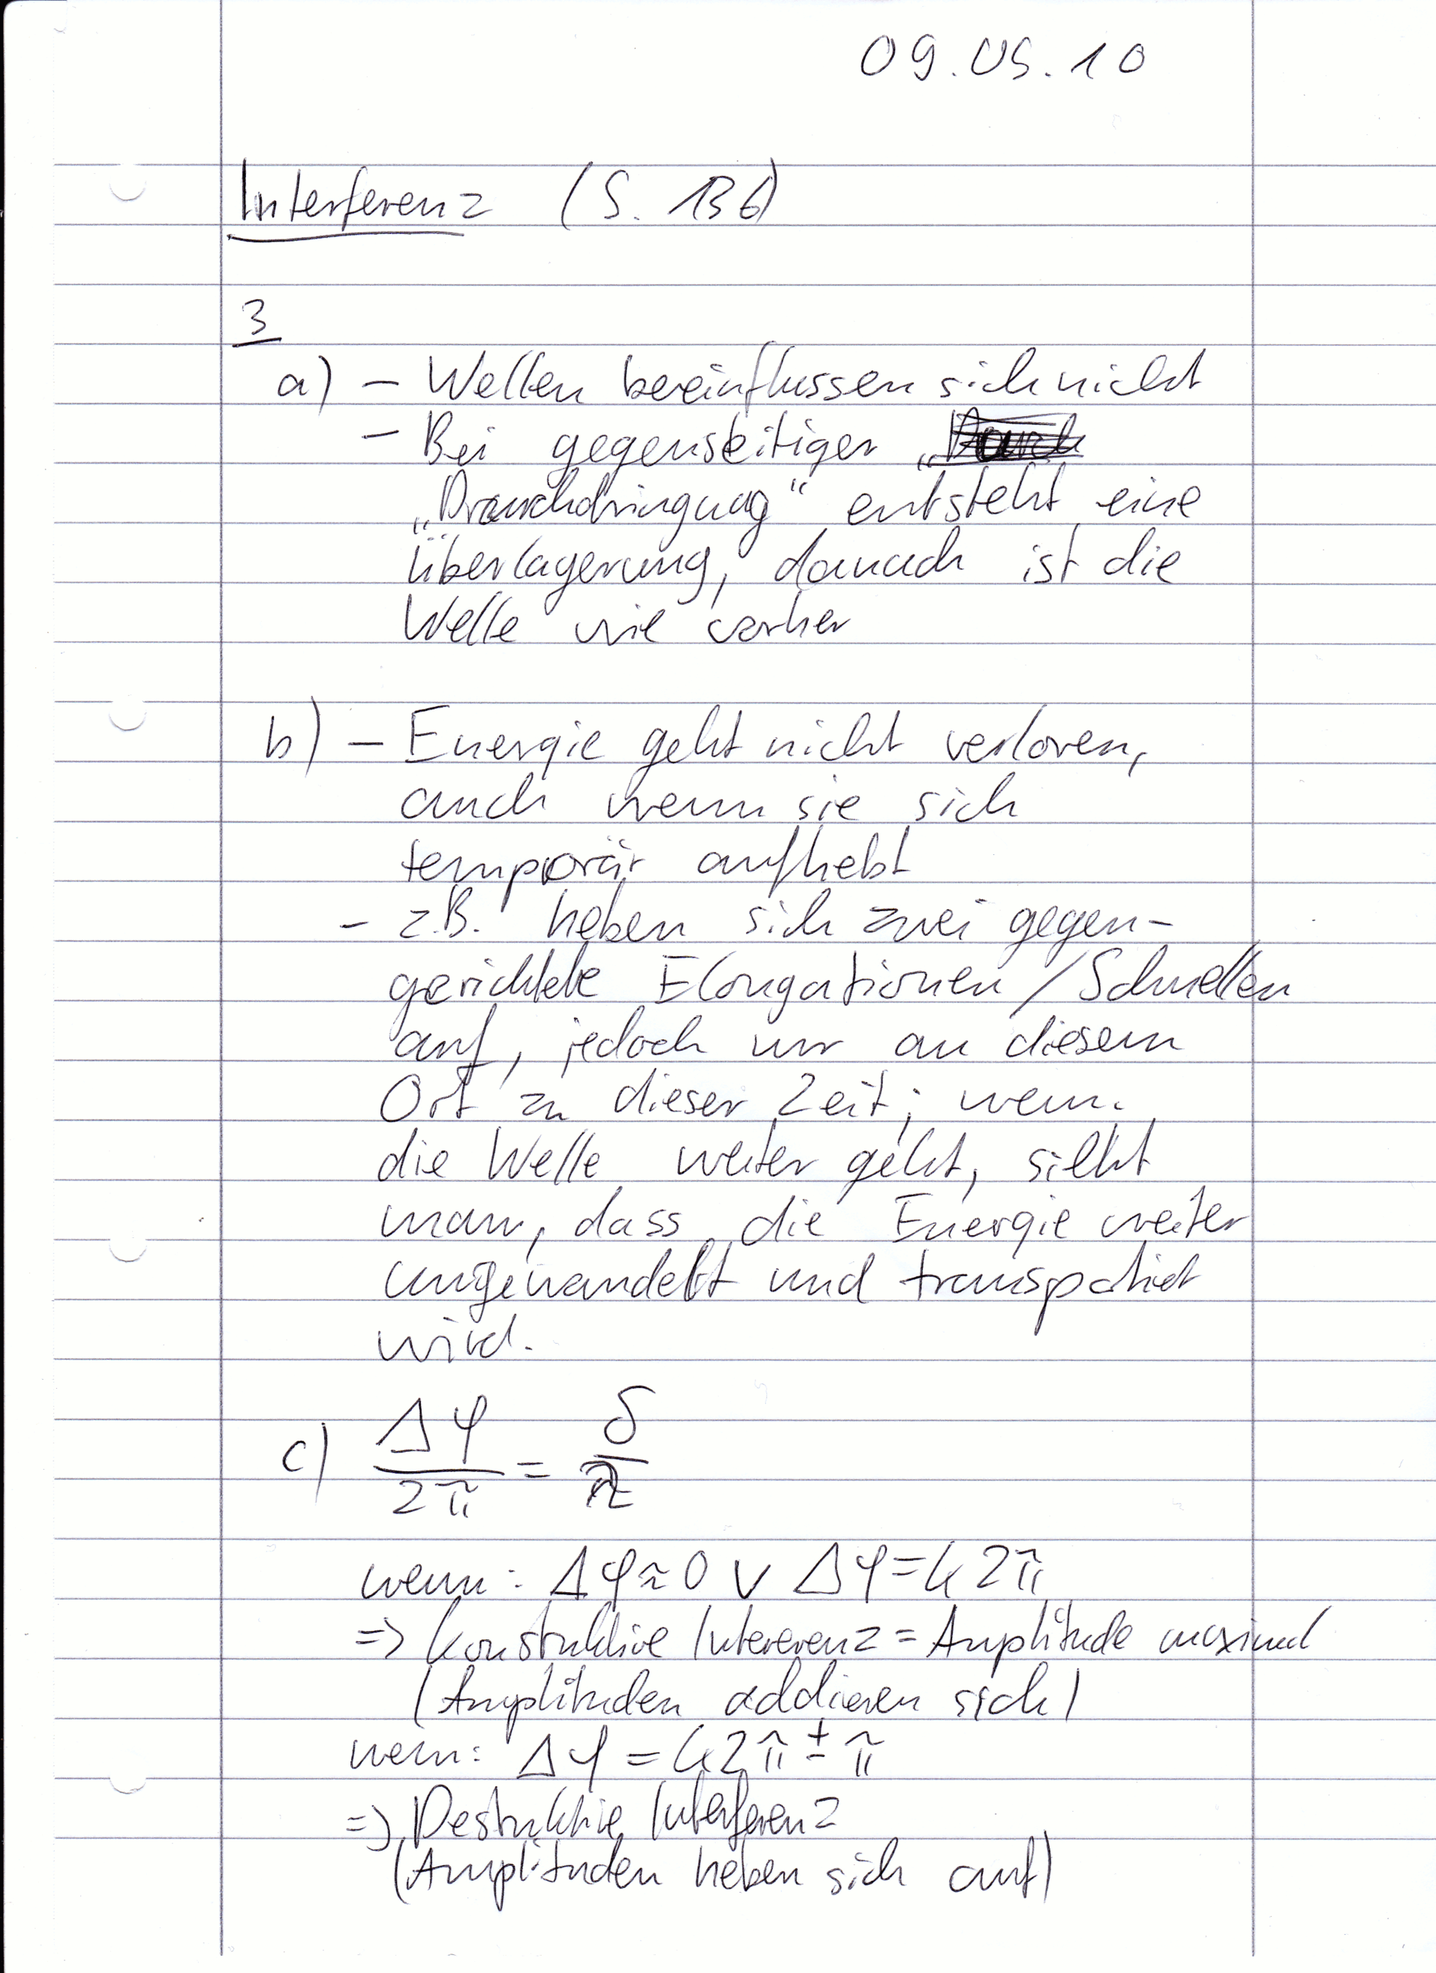 09.05.10
Interferenz (S. 136)
3
a) – Wellen beeinflussen sich nicht
– Bei gegenseitiger „
„Durchdringung“ entsteht eine
überlagerung, danach ist die
Welle wie vorher
b) – Energie geht nicht verloren,
auch wenn sie sich
temporär aufhebt
– z.B. heben sich zwei gegen-
gerichtete Elongationen / Schnellen
auf, jedoch nur an diesem
Ort zu dieser Zeit; wenn
die Welle weiter geht, sieht
man, dass die Energie weiter
umgewandelt und transportiert
wird.
c) Δφ/2π = δ/λ
wenn: Δφ≈0 ∨ Δφ=k2π
=> konstruktive Intererenz = Amplitude maximal
(Amplituden addieren sich)
wenn: Δφ = k2π ± π
=> Destruktive Interferenz
(Amplituden heben sich auf)